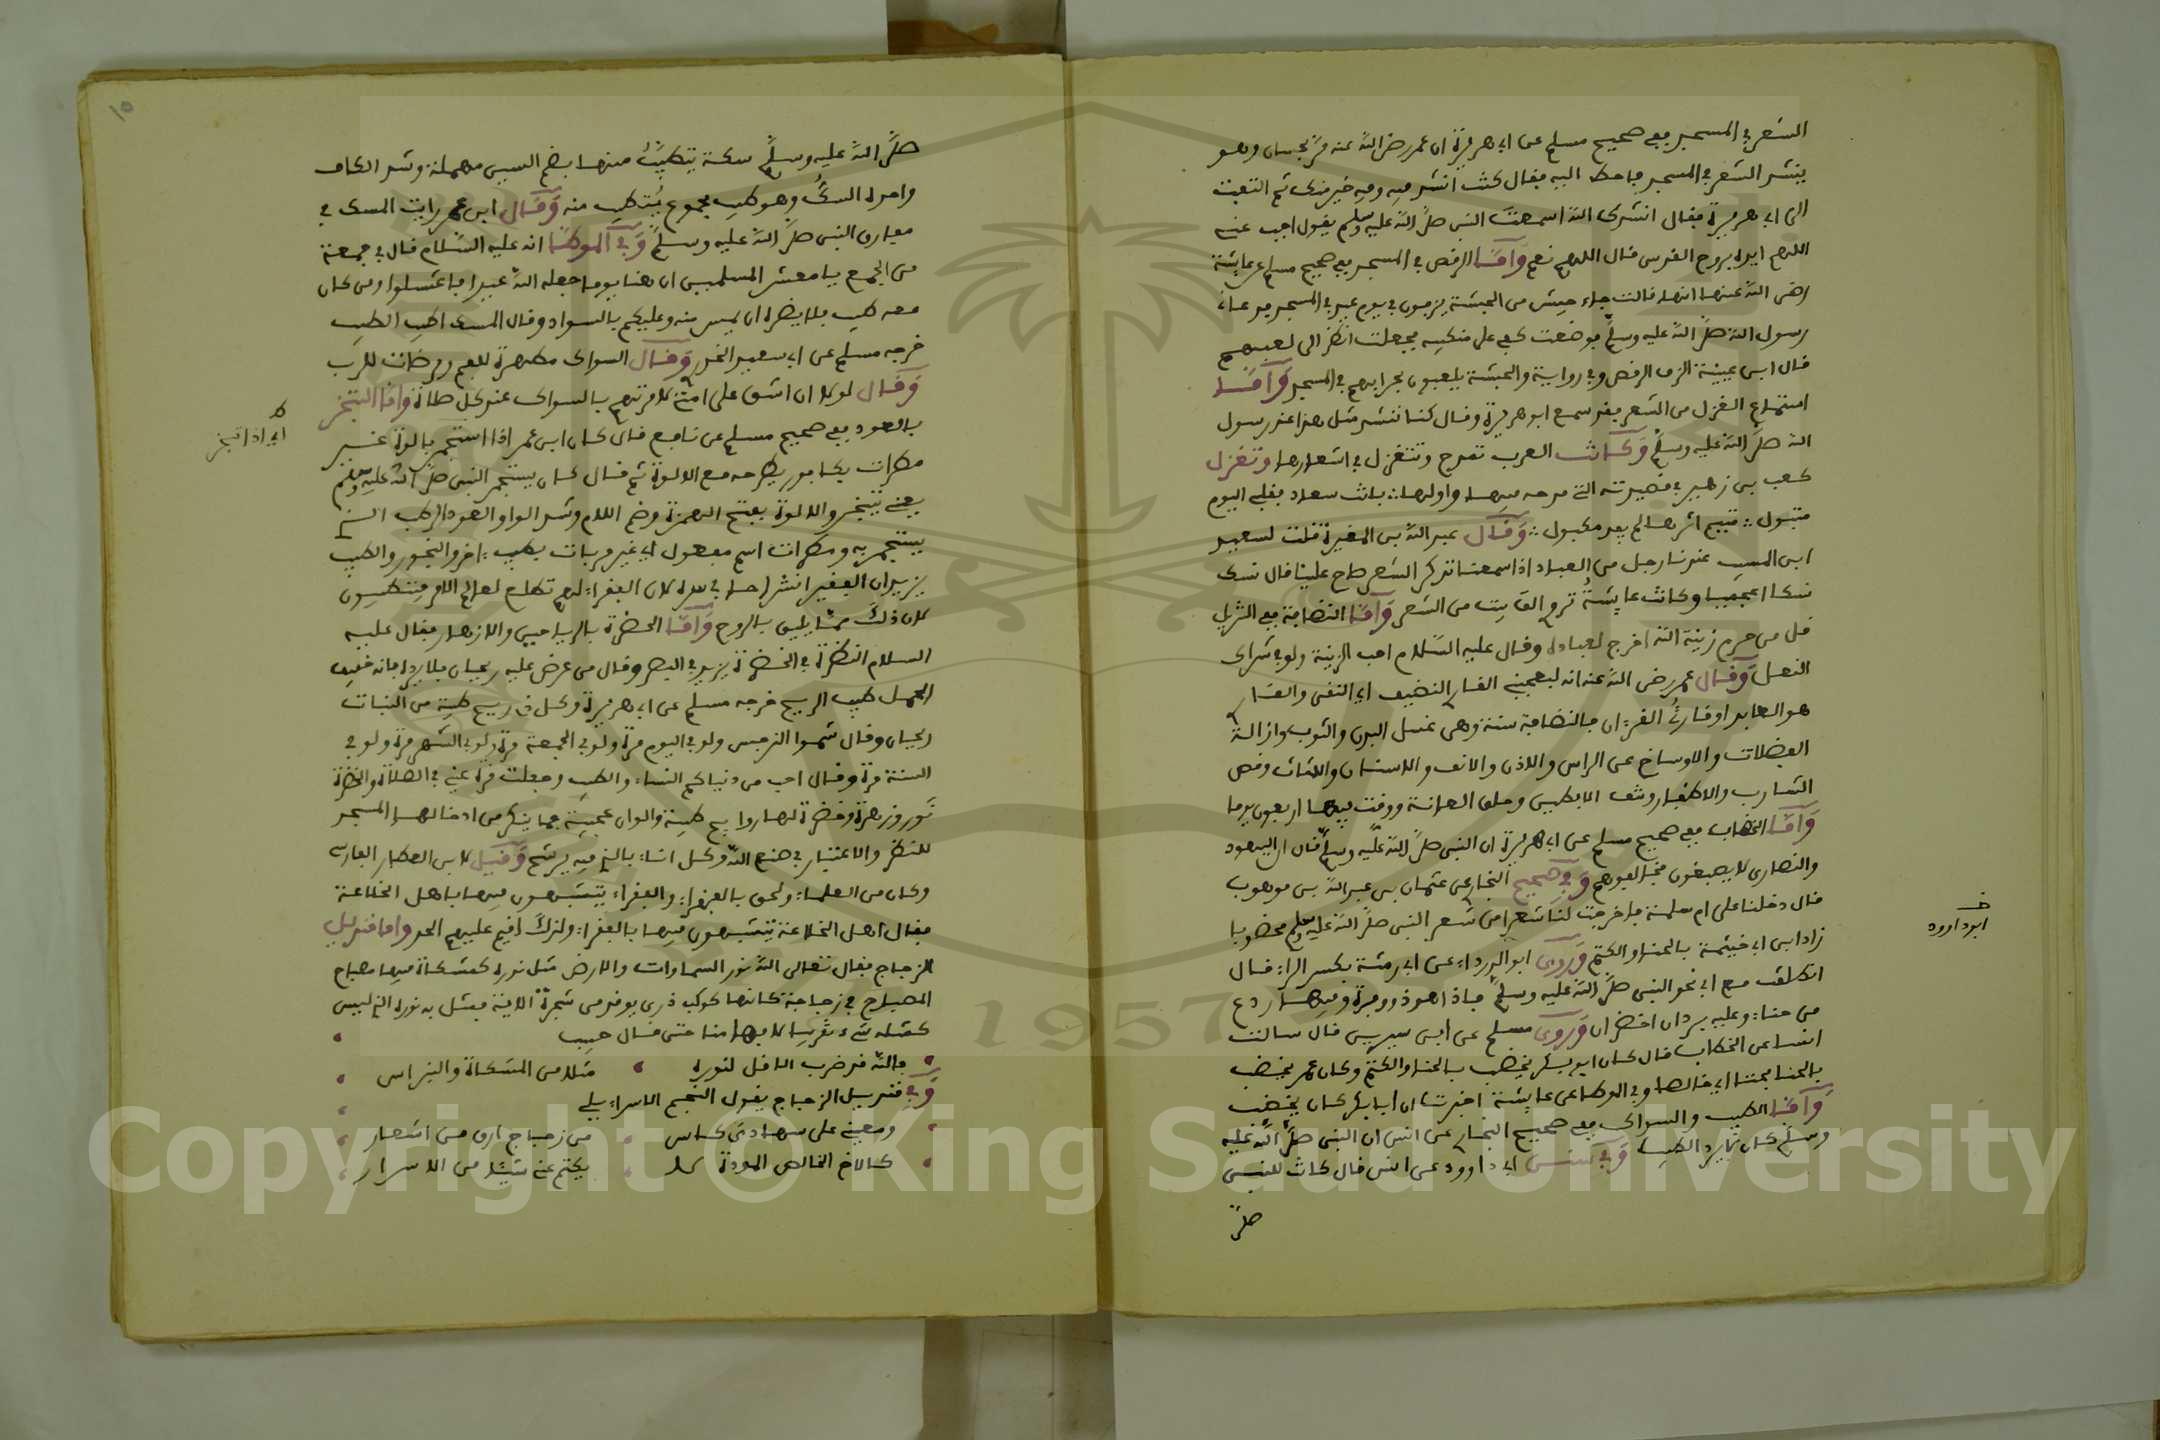 الشعر في المسجد ففي صحيح مسلم عن ابي هريرة ان عمر رضي الله عنه مر بحسان وهو
ينشد الشعر في المسجد فلحظ اليه فقال كنت انشد فيه وفيه خير منك ثم التفت
الى ابي هريرة فقال انشدك الله اسمعت النبي صلى الله عليه وسلم يقول اجب عني
اللهم ايده بروح القدس قال اللهم نعم واما الرقص في المسجد ففي صحيح مسلم عن عايشة
رضي الله عنها انها قالت جاء حبش من الحبشة يزفون في يوم عيد في المسجد فدعاني
رسول الله صلى الله عليه وسلم فوضعت كفي على منكبه فجعلت انظر الى لعبهم
قال ابن عيينة الزفن الرقص وفي رواية والحبشة يلعبون بحرابهم في المسجد واما
استماع الغزل من الشعر فقد سمع ابو هريرة وقال كنا ننشد مثل هذا عند رسول
الله صلى الله عليه وسلم وكانت العرب تمدح وتتغزل في اشعارها وتغزل
كعب بن زهير في قصيدته التي مدحه فيها واولها بانت سعاد فقلبي اليوم
متبول متيم اثرها لم يفد مكبول وقال عبد الله بن المغيرة قلت لسعيد
ابن المسيب عندنا رجل من العباد اذا سمعنا نذكر الشعر صاح علينا قال نسك
نسكا اعجميا وكانت عايشة تروي الف بيت من الشعر واما النظافة ففي التنزيل
قل من حرم زينة الله التي اخرج لعباده وقال عليه السلام احب الزينة ولو في شراك
النعل وقال عمر رضي الله عنه انه ليعجبني القاري النظيف اي النقي والقاري
هو العابد او قارئ القرءان فالنظافة سنة وهي غسل البدن والثوب وازالة
الفضلات والاوساخ عن الراس والاذن والانف والاسنان واللثات وقص
الشارب والاظفار ونتف الابطين وحلق العانة ووقت فيها اربعون يوما
واما الخضاب ففي صحيح مسلم عن ابي هريرة ان النبي صلى الله عليه وسلم قال ان اليهود
والنصارى لا يصبغون فخالفوهم وفي صحيح البخاري عن عثمان بن عبد الله بن موهوب
قال دخلنا على ام سلمة فاخرجت لنا شعرا من شعر النبي صلى الله عليه وسلم مخضوبا
زاد ابن ابي خيثمة بالحناء والكتم وروى ابو الدرداء عن ابي رمثة بكسر الراء قال
ابو داوود
انطلقت مع ابي نحو النبي صلى الله عليه وسلم فاذا هو ذو وفرة وفيها ردع
من حناء وعليه بردان اخضران وروى مسلم عن ابن سيرين قال سالت
انسا عن الخضاب قال كان ابو بكر يخضب بالحنا والكتم وكان عمر يخضب
بالحنا بحتا اي خالصا وفي الموطا عن عايشة اخبرت ان ابا بكر كان يخضب
واما الطيب والسواك ففي صحيح البخاري عن انس ان النبي صلى الله عليه
وسلم كان لا يرد الطيب وفي سنن ابي داوود عن انس قال كانت للنبي
صلى
١٥
صلى الله عليه وسلم سكة يتطيب منها بضم السين مهملة وشد الكاف
وامره السك وهو طيب مجموع يتطيب منه وقال ابن عمر رايت المسك في
مفارق النبي صلى الله عليه وسلم وفي الموطا انه عليه السلام قال في جمعة
من الجمع يا معشر المسلمين ان هذا يوما جعله الله عيدا فاغتسلوا ومن كان
معه طيب فلا يضره ان يمس منه وعليكم بالسواك وقال المسك اطيب الطيب
خرجه مسلم عن ابي سعيد الخدري وقال السواك مطهرة للفم ومرضات للرب
وقال لولا ان اشق على امتي لامرتهم بالسواك عند كل صلاة واما التبخر
بالعود ففي صحيح مسلم عن نافع قال كان ابن عمر اذا استجمر بالوة غير
اي اذا تبخر
مطرات بكافور يطرحه مع الالوة ثم قال كان يستجمر النبي صلى الله عليه وسلم
يعني يتبخر والالوة بفتح الهمزة وضم اللام وشد الواو العود الرطب الذي
يستجمر به ومطرات اسم مفعول اي غير مربات بطيب اخر والبخور والطيب
يزيدان الفقير انشراحا في سره لان الفقراء لهم تطلع لعالم الامر فينتكسون
لان ذلك مما يليق بالروح واما الخضرة بالرياحين والازهار فقال عليه
السلام النظرة في الخضرة يزيد في البصر وقال من عرض عليه ريحان فلا يرده فانه خفيف
المحمل طيب الريح خرجه مسلم عن ابي هريرة وكل ذي ريح طيبة من النبات
ريحان وقال شموا النرجس ولو في اليوم مرة ولو في الجمعة مرة ولو في الشهر مرة ولو في
السنة مرة وقال احب من دنياكم النساء والطيب وجعلت قرة عيني في الصلاة والخضرة
نور وزهرة وخضرة لها روايح طيبة والوان عجيبة فما ينكر من ادخالها المسجد
للنظر والاعتبار في صنع الله وكل اناء بالذي فيه يرشح وقيل لابن العطار الفارسي
وكان من العلماء ولحق بالفقراء والفقراء يتشبهون فيها باهل الخلاعة
فقال اهل الخلاعة يتشبهون فيها بالفقراء ولذلك اقيم عليهم الحد واما قنديل
الزجاج فقال تعالى الله نور السماوات والارض مثل نوره كمشكاة فيها مصباح
المصباح في زجاجة كانها كوكب دري يوقد من شجرة الاية فمثل به نوره الذي ليس
كمثله شيء تقريبا لافهامنا حتى قال حبيب
فالله قد ضرب الاقل لنوره مثلا من المشكاة والنبراس
وفي قنديل الزجاج يقول النجم الاسراءيلي
ومعيني على سهادي كاس من زجاج ارق من اشعار
كالاخ الخالص المودة لا يكتم عني شيئا من الاسرار
Copyright © King Saud University
1957